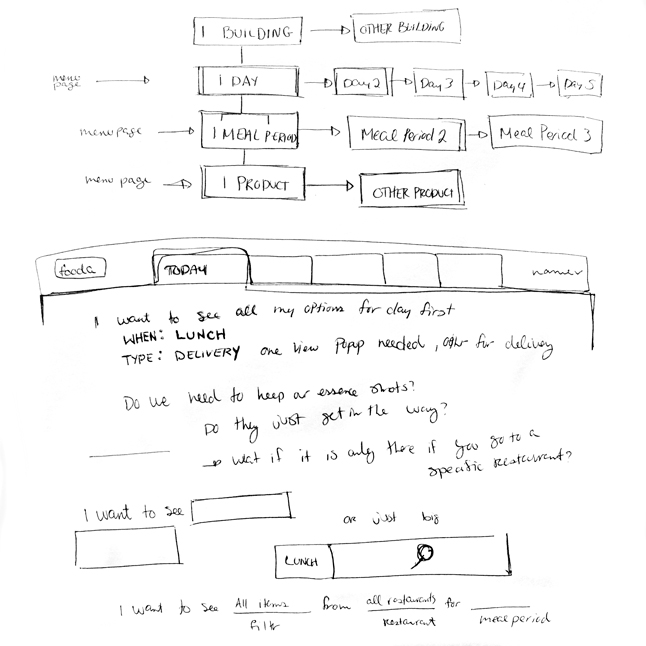 1 BUILDING OTHER BUILDING
menu page 1 DAY Day 2 Day 3 Day 4 Day 5
menu page 1 MEAL PERIOD Meal Period 2 Meal Period 3
menu page 1 PRODUCT OTHER PRODUCT
fooda TODAY
I want to see all my options for day first
WHEN: LUNCH
TYPE: DELIVERY one view Popup needed, for delivery
Do we need to keep our essence shots?
Do they just get in the way?
→ what if it is only there if you go to a
specific restaurant?
I want to see
or just big
LUNCH
I want to see All items from all restaurants for
filter restaurant meal period